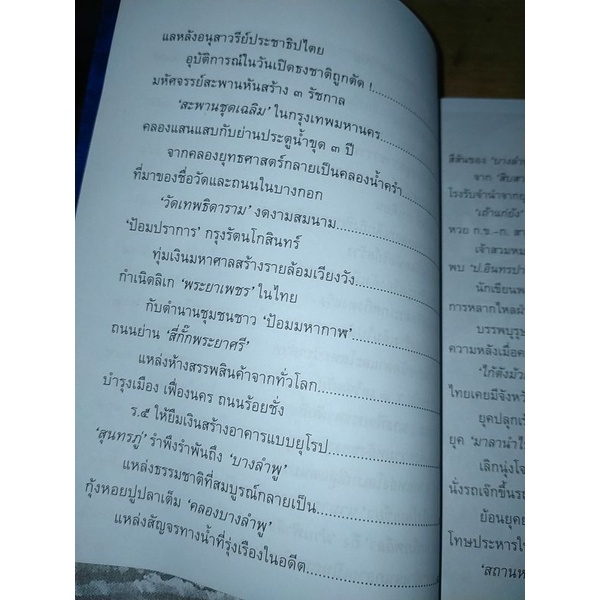 แลหลังอนุสาวรีย์ประชาธิปไตย
อุบัติการณ์ในวันเปิดธงชาติถูกตัด !
มหัศจรรย์สะพานหันสร้าง ๓ รัชกาล
'สะพานชุดเฉลิม' ในกรุงเทพมหานคร
คลองแสนแสบกับย่านประตูน้ำขุด ๓ ปี
จากคลองยุทธศาสตร์กลายเป็นคลองน้ำครำ
ที่มาของชื่อวัดและถนนในบางกอก
'วัดเทพธิดาราม' งดงามสมนาม
'ป้อมปราการ' กรุงรัตนโกสินทร์
ทุ่มเงินมหาศาลสร้างรายล้อมเวียงวัง
กำเนิดลิเก 'พระยาเพชร' ในไทย
กับตำนานชุมชนชาว 'ป้อมมหากาฬ'
ถนนย่าน 'สี่กั๊กพระยาศรี'
แหล่งห้างสรรพสินค้าจากทั่วโลก
บำรุงเมือง เฟื่องนคร ถนนร้อยชั่ง
ร.๕ ให้ยืมเงินสร้างอาคารแบบยุโรป
'สุนทรภู่' รำพึงรำพันถึง 'บางลำพู'
แหล่งธรรมชาติที่สมบูรณ์กลายเป็น
กุ้งหอยปูปลาเต็ม 'คลองบางลำพู'
แหล่งสัญจรทางน้ำที่รุ่งเรืองในอดีต
สีสันของ
จาก
โรงรับจำนำจาก
'เถ้าแก่ฮง'
หวย ก.ข.
เจ้าสวม
พบ
นักเขียน
การหลากไหล
บรรพบุรุษ
ความหลังเมื่อ
ไทยเคยมีจังหวั
ยุคปลุก
ยุค 'มาลานำไ
เลิกนุ่งโจ
นั่งรถเจ๊กขึ้นร
ย้อนยุค
โทษประหารใ
'สถานห